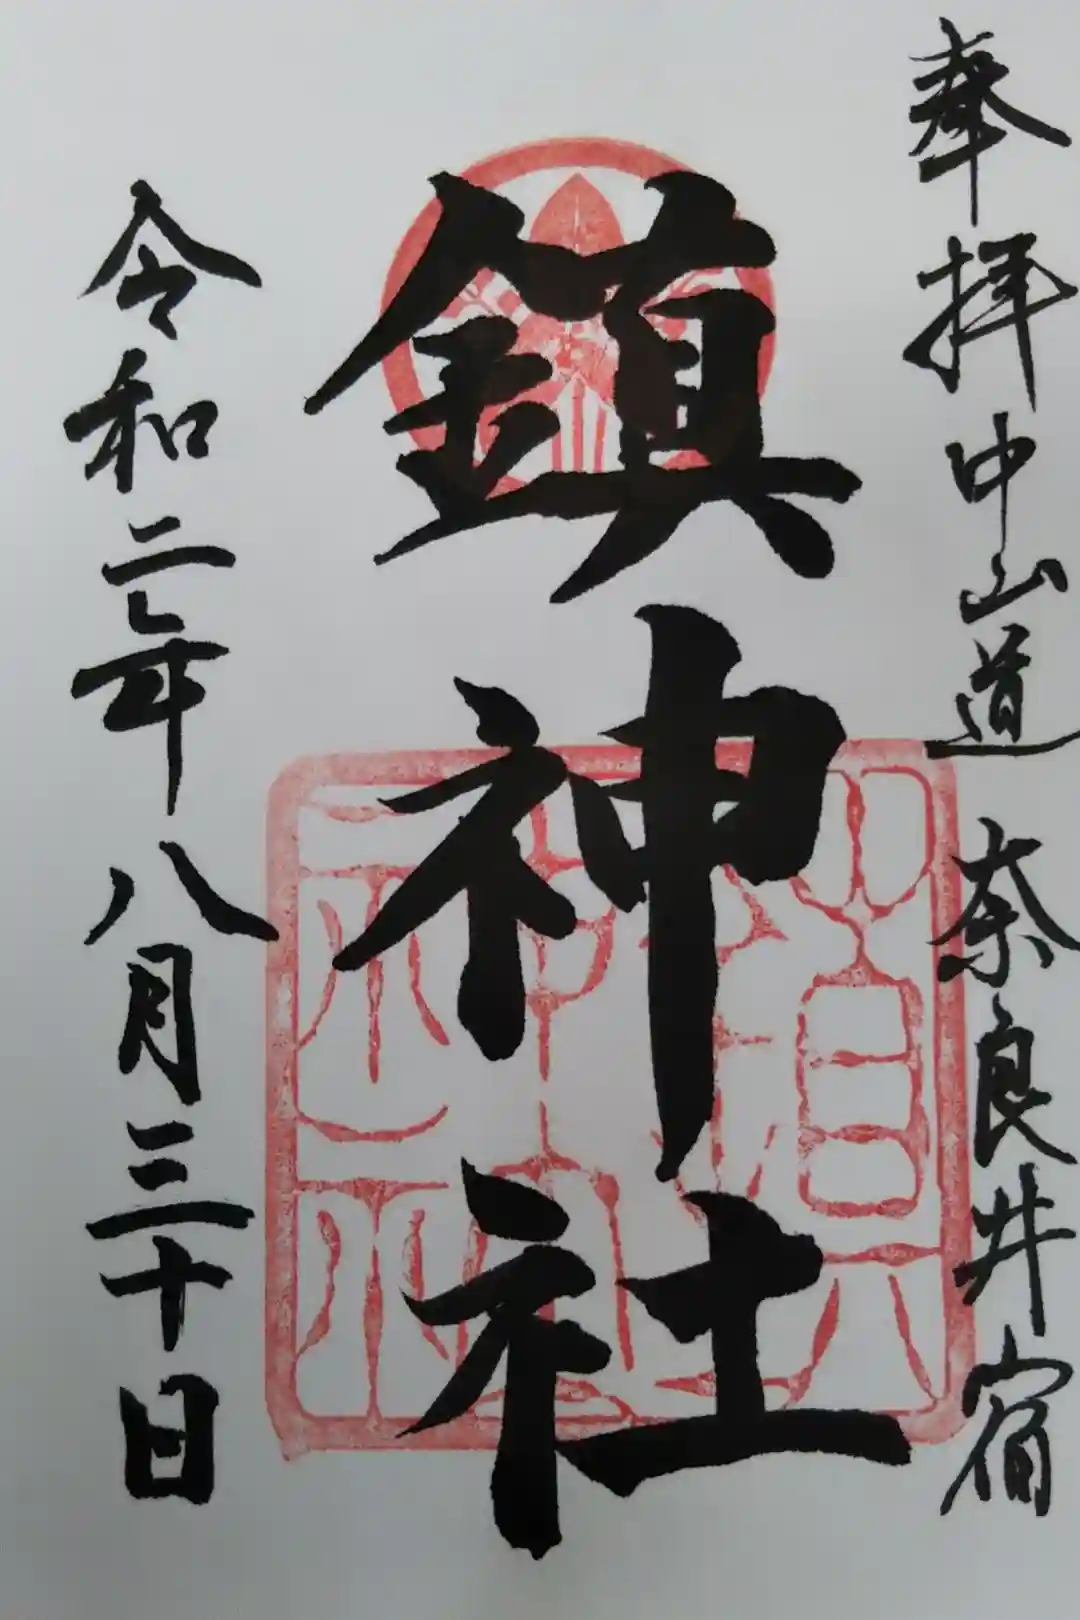 奉拝 中山道 奈良井宿
鎮神社
令和二年八月三十日